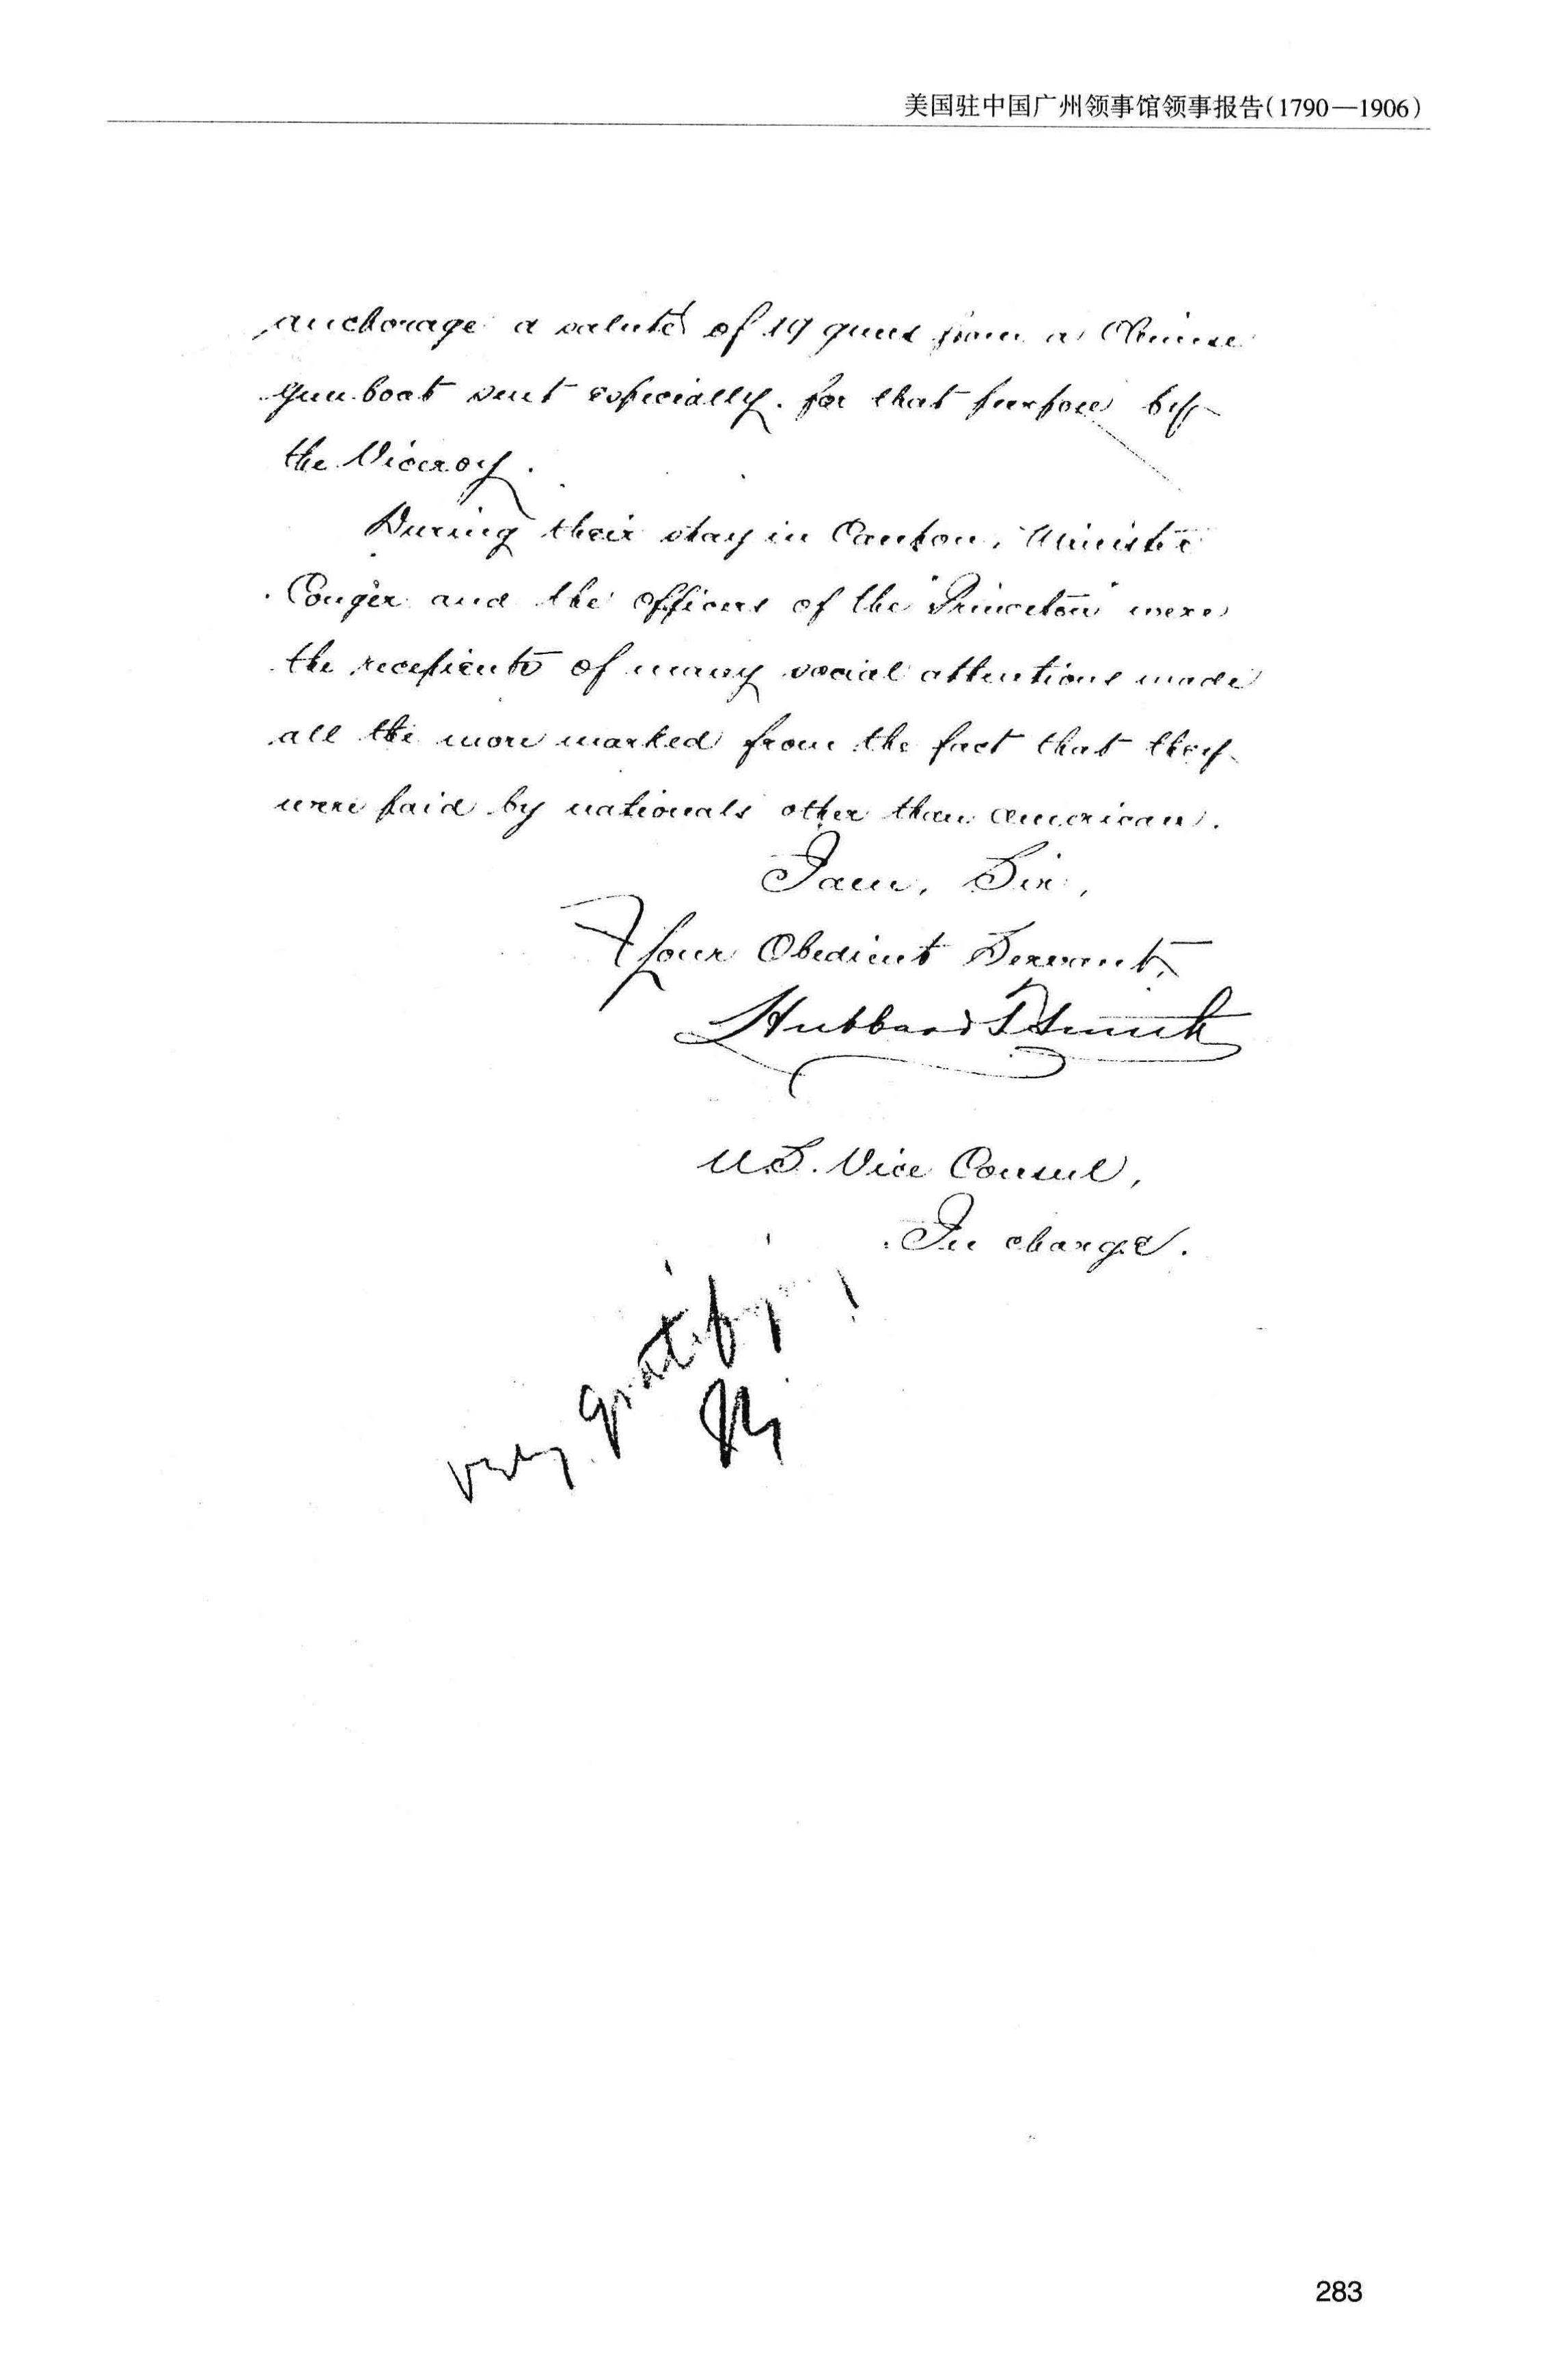 美国驻中国广州领事馆领事报告(1790—1906)
anchorage a salute of 19 guns from a Chinese
gun boat sent especially for that purpose by
the Viceroy.
During their stay in Canton, Minister
Conger and the officers of the "Princeton" were
the recepients of many social attentions made
all the more marked from the fact that they
were paid by nationals other than American.
I am, Sir,
Your Obedient Servant,
Hubbard T. Smith
U.S. Vice Consul,
In charge.
very gratifying!
283